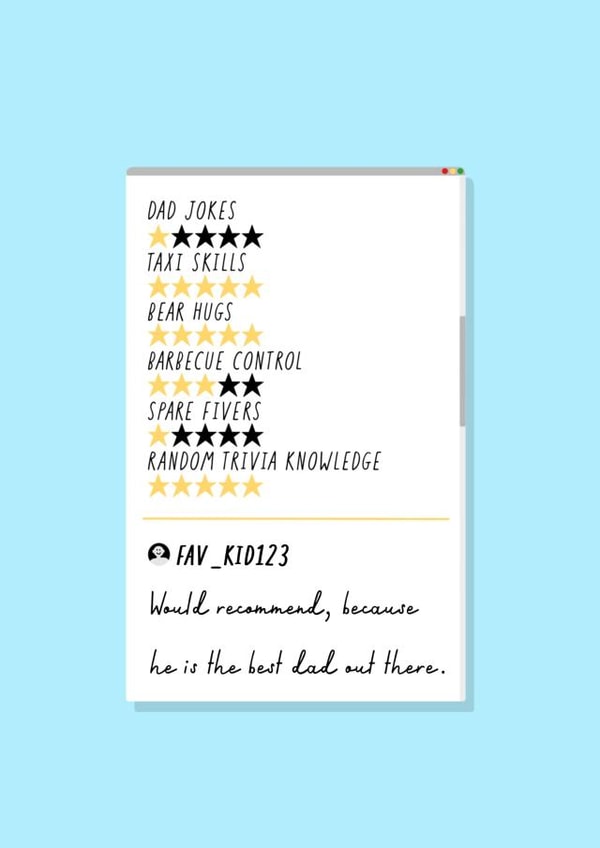 DAD JOKES
TAXI SKILLS
BEAR HUGS
BARBECUE CONTROL
SPARE FIVERS
RANDOM TRIVIA KNOWLEDGE
FAV_KID123
Would recommend, because
he is the best dad out there.